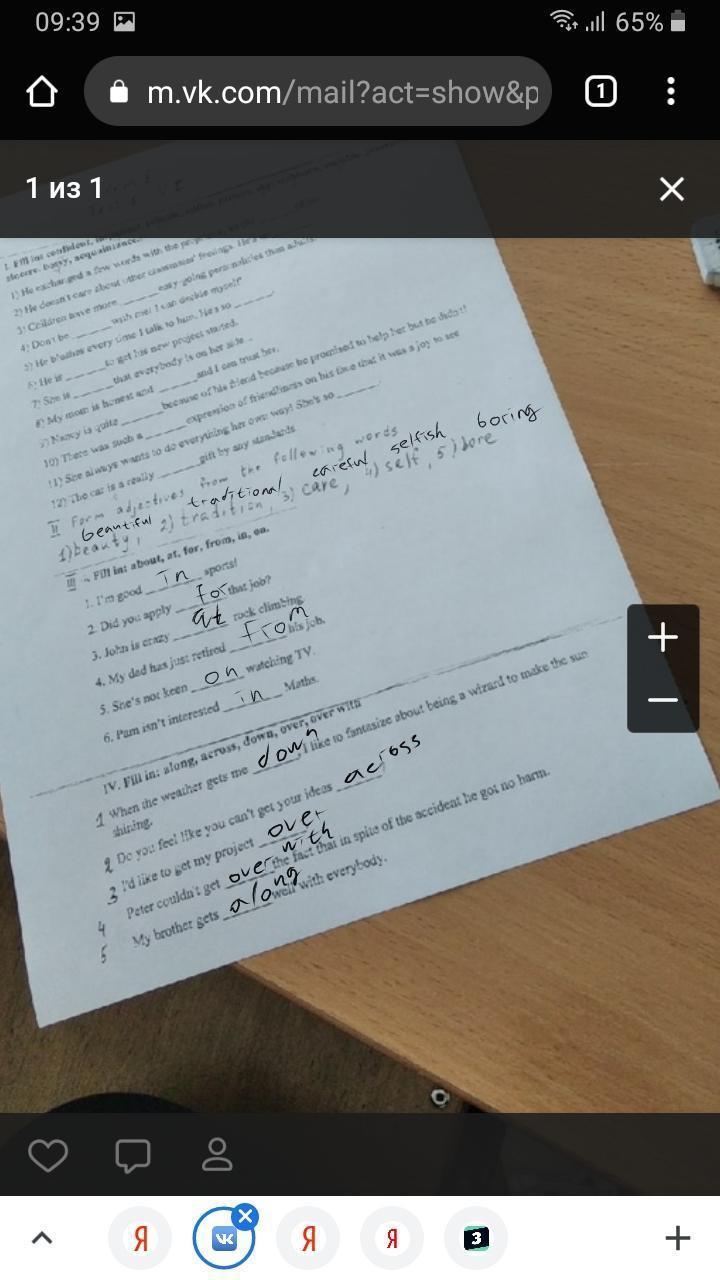 09:39 65%
m.vk.com/mail?act=show&p 1
1 из 1
1. Fill in: confident,
sincere, bossy, acquaintance,
1) He exchanged a few words with the
2) He doesn't care about other classmates' feelings. He's
3) Children have more ______ easy-going personalities than adults.
4) Don't be ______ with me! I can decide myself!
5) He blushes every time I talk to him. He's so ______.
6) He is ______ to get his new project started.
7) She is ______ that everybody is on her side.
8) My mom is honest and ______ and I can trust her.
9) Nancy is quite ______ because of his friend because he promised to help her but he didn't!
10) There was such a ______ expression of friendliness on his face that it was a joy to see
11) She always wants to do everything her own way! She's so ______.
12) The car is a really ______ gift by any standards.
II Form adjectives from the following words
beautiful traditional careful selfish boring
1) beauty, 2) tradition, 3) care, 4) self, 5) bore
III. Fill in: about, at, for, from, in, on.
1. I'm good in sports!
2. Did you apply for that job?
3. John is crazy at rock climbing.
4. My dad has just retired from his job.
5. She's not keen on watching TV.
6. Pam isn't interested in Maths.
IV. Fill in: along, across, down, over, over with
1 When the weather gets me down, I like to fantasize about being a wizard to make the sun
shining.
2 Do you feel like you can't get your ideas across
3 I'd like to get my project over with
4 Peter couldn't get over the fact that in spite of the accident he got no harm.
5 My brother gets along well with everybody.